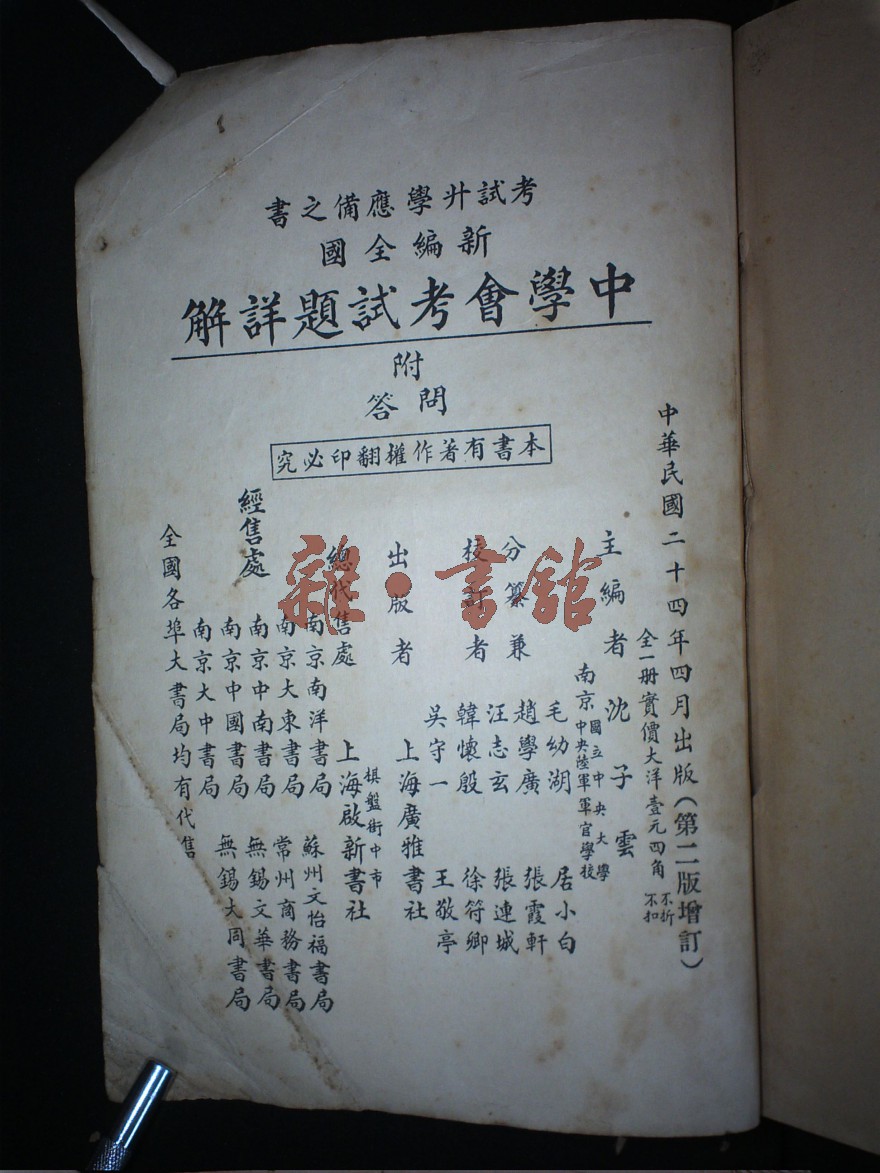 考試升學應備之書
新編全國
中學會考試題詳解
附
問答
本書有著作權翻印必究
中華民國二十四年四月出版(第二版增訂)
全一冊實價大洋壹元四角 不折不扣
主編者 沈子雲
國立中央大學
南京中央陸軍軍官學校
分纂兼
校訂者
毛幼湖 居小白
趙學廣 張霞軒
汪志玄 張連城
韓懷殷 徐符卿
吳守一 王敬亭
出版者 上海廣雅書社
棋盤街中市
總代售處 上海啟新書社
經售處
南京南洋書局 蘇州文怡福書局
南京大東書局 常州商務書局
南京中南書局 無錫文華書局
南京中國書局 無錫大同書局
南京大中書局
全國各埠大書局均有代售
雜·書館